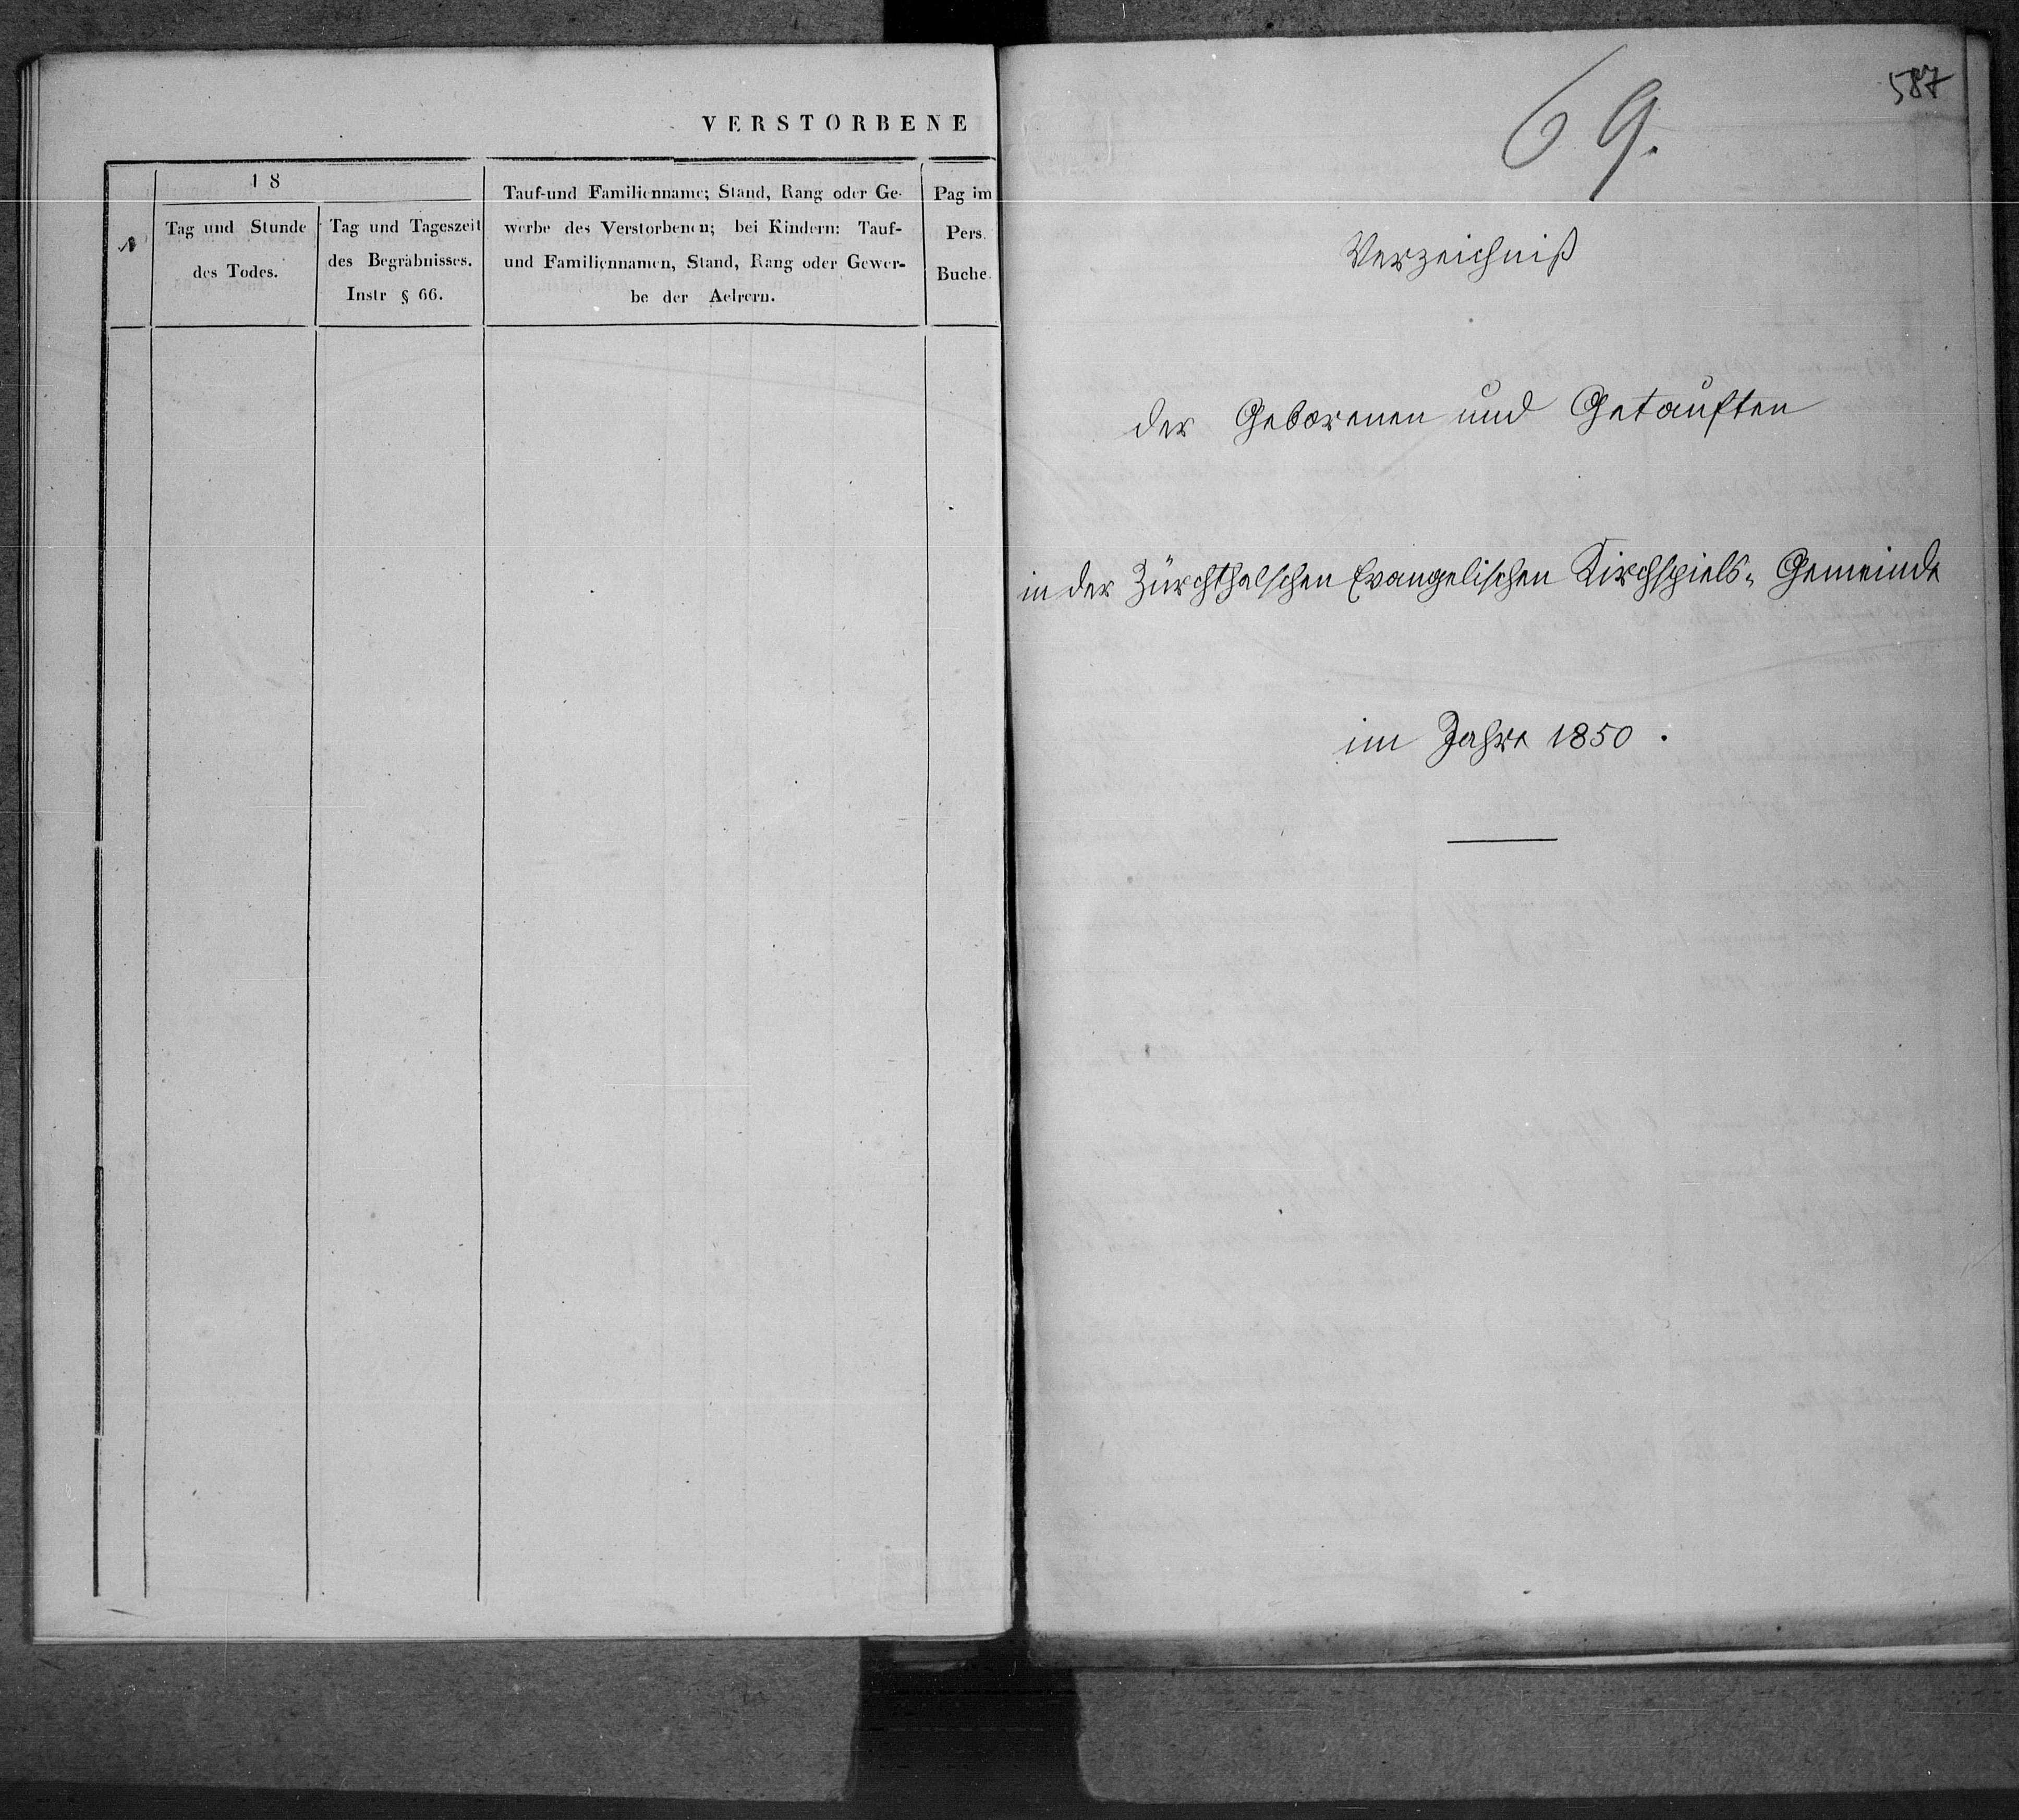 VERSTORBENE
№
18
Tag und Stunde
des Todes.
Tag und Tageszeit
des Begräbnisses.
Instr § 66.
Tauf-und Familienname; Stand, Rang oder Ge-
werbe des Verstorbenen; bei Kindern: Tauf-
und Familiennamen, Stand, Rang oder Gewer-
be der Aelrern.
Pag im
Pers.
Buche.
587
69.
Verzeichniß
der Geborenen und Getauften
in der Zürchthalschen Evangelischen Kirchspiels-Gemeinde
im Jahre 1850.